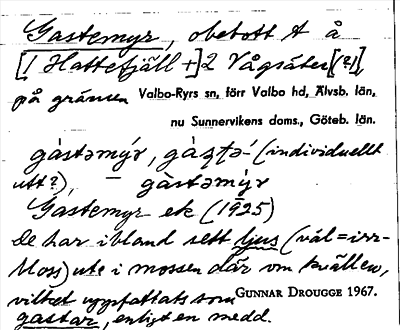 Gastemyr, obebott t å
[1 Hattefjäll +] 2 Vågsäter [(?)],
på gränsen Valbo-Ryrs sn, förr Valbo hd, Älvsb. län,
nu Sunnervikens doms., Göteb. län.
gàstəmýr, (individuellt
utt?), – gàstəmýr
Gastemyr ek (1925)
De har ibland sett ljus (väl = irr-
bloss) ute i mossen där om kvällen,
vilket uppfattats som GUNNAR DROUGGE 1967.
gastar, enligt en medd.